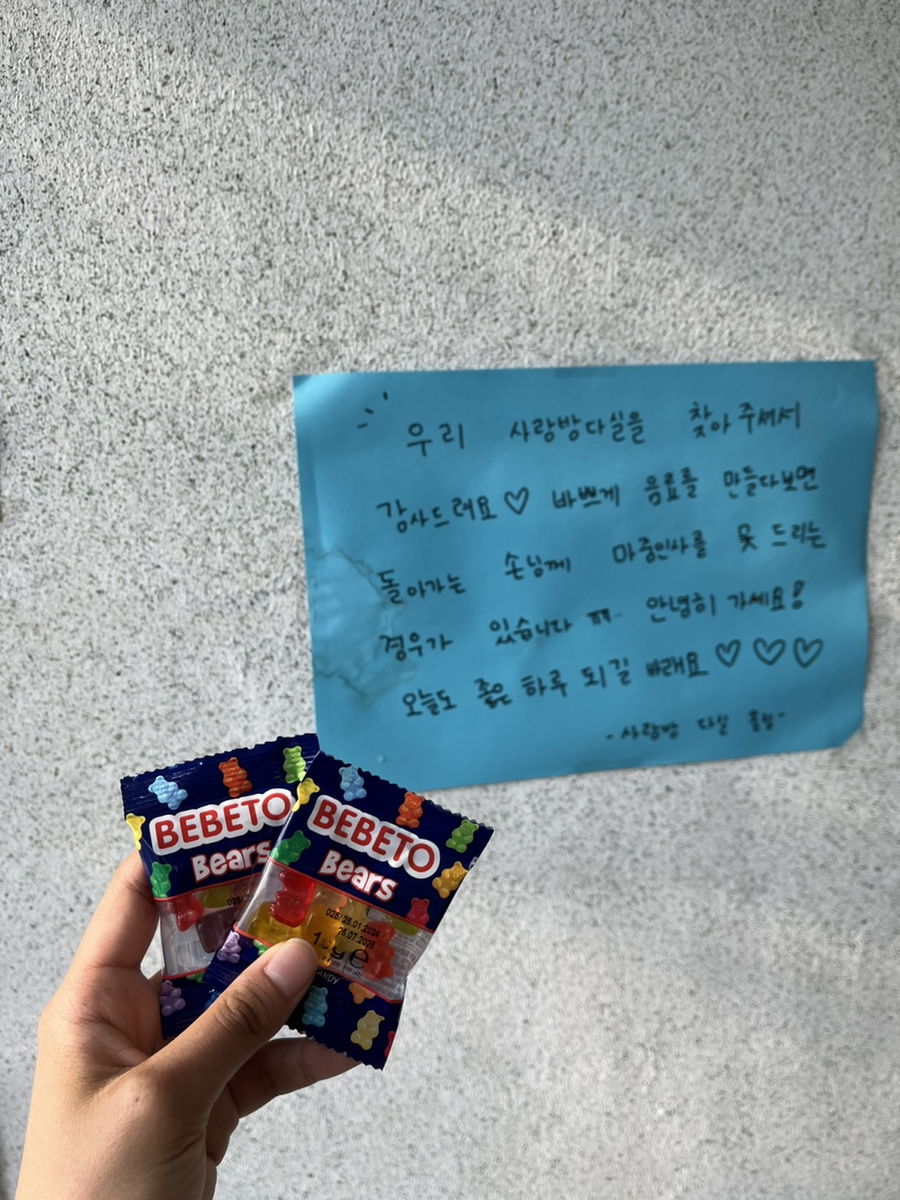 우리 사랑방다실을 찾아주셔서
감사드려요♡ 바쁘게 음료를 만들다보면
돌아가는 손님께 마중인사를 못 드리는
경우가 있습니다 ㅠㅠ 안녕히 가세요!
오늘도 좋은 하루 되길 바래요♡♡♡
-사랑방 다실 올림-
BEBETO
Bears
BEBETO
Bears
028/ 26.01.2024
26.07.2026